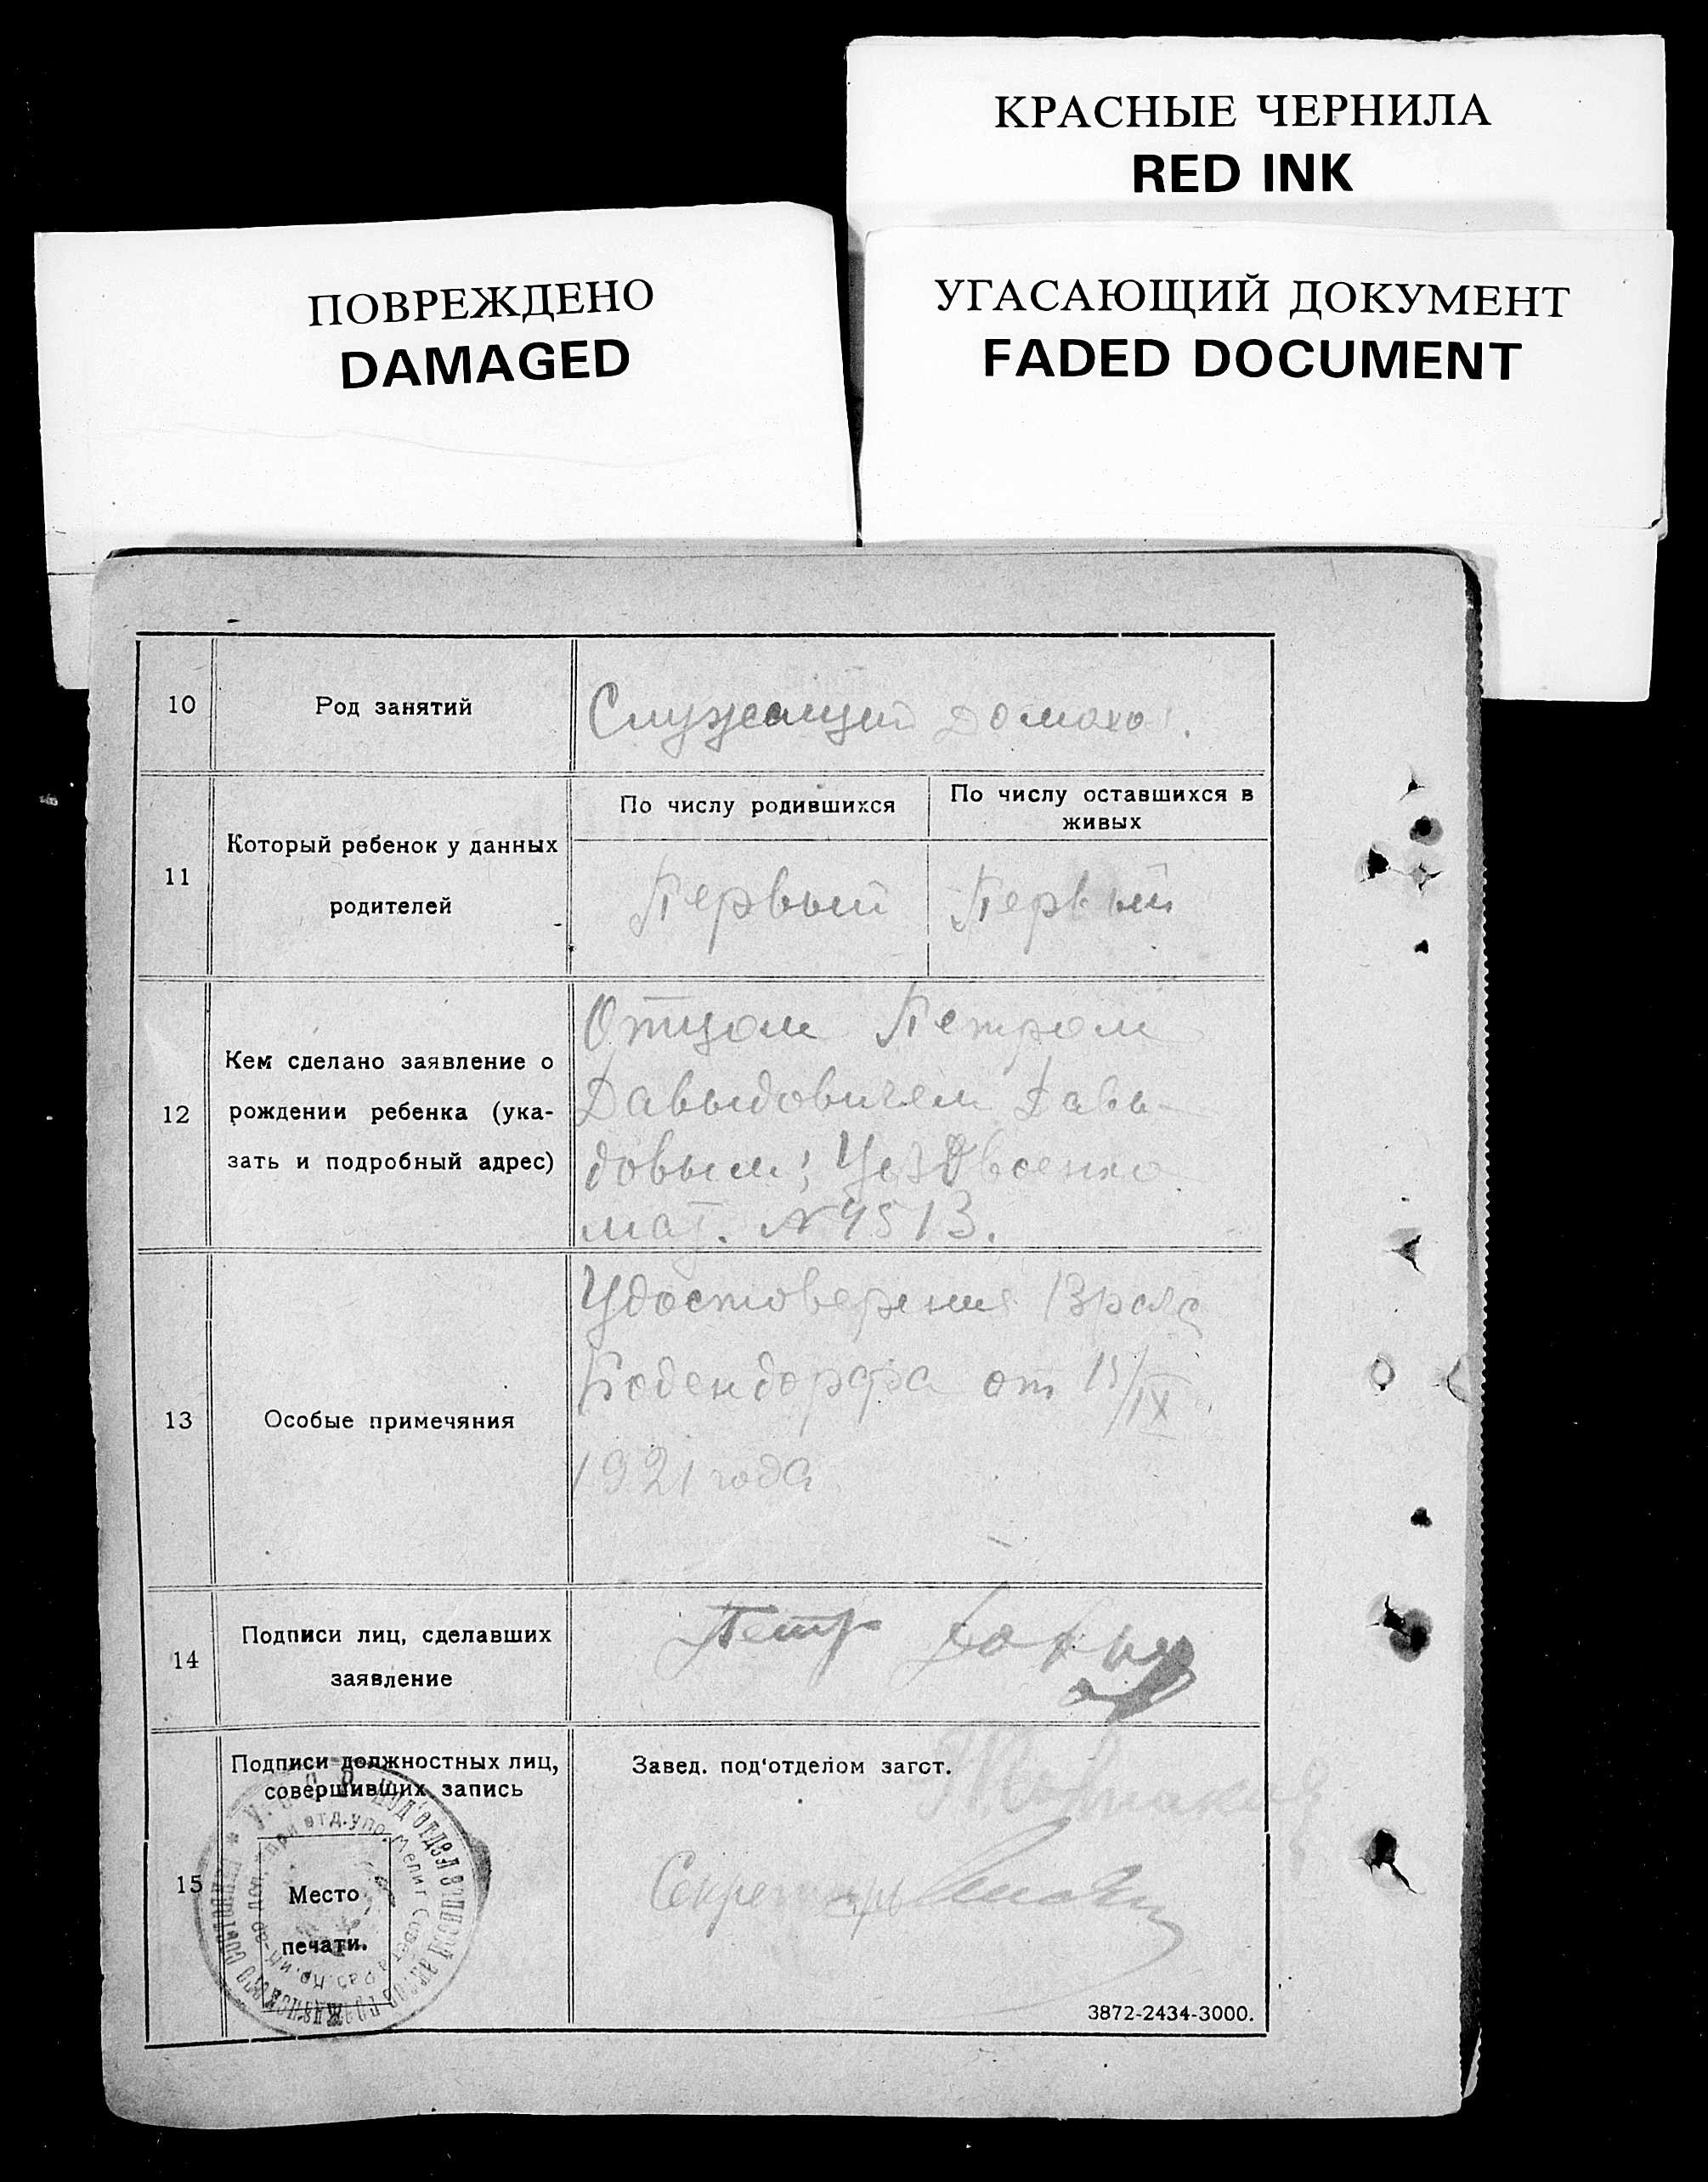 КРАСНЫЕ ЧЕРНИЛА
RED INK
ПОВРЕЖДЕНО
DAMAGED
УГАСАЮЩИЙ ДОКУМЕНТ
FADED DOCUMENT
10 Род занятий
Служащий Домахоз.
11 Который ребенок у данных
родителей
По числу родившихся
По числу оставшихся в
живых
Первый Первый
12 Кем сделано заявление о
рождении ребенка (ука-
зать и подробный адрес)
Отцом Петром
Давыдовичем Давы-
довым;
мат. № 4513.
13 Особые примечяния
Удостоверение Врача
от 15/IX
1921 года
14 Подписи лиц, сделавших
заявление
Петр Давыд
15 Подписи должностных лиц,
совершивших запись
Место
печати.
Завед. под'отделом загст.
Секретарь
3872-2434-3000.